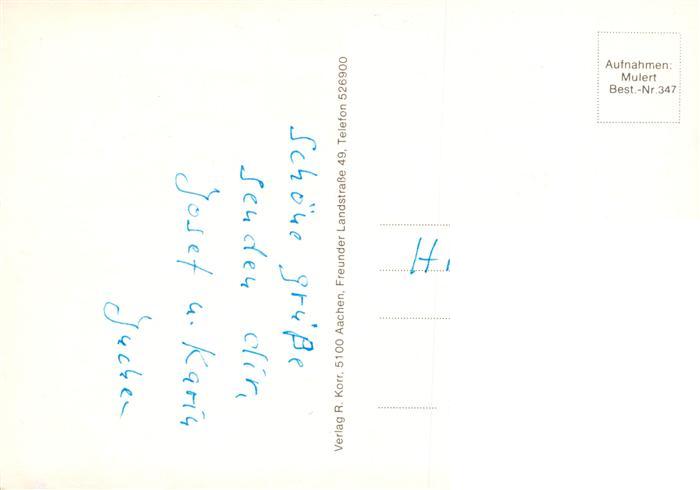 schöne grüße
senden dir,
Josef u. Karin
Verlag R. Korr, 5100 Aachen, Freunder Landstraße 49, Telefon 526900
Aufnahmen:
Mulert
Best.-Nr.347
H